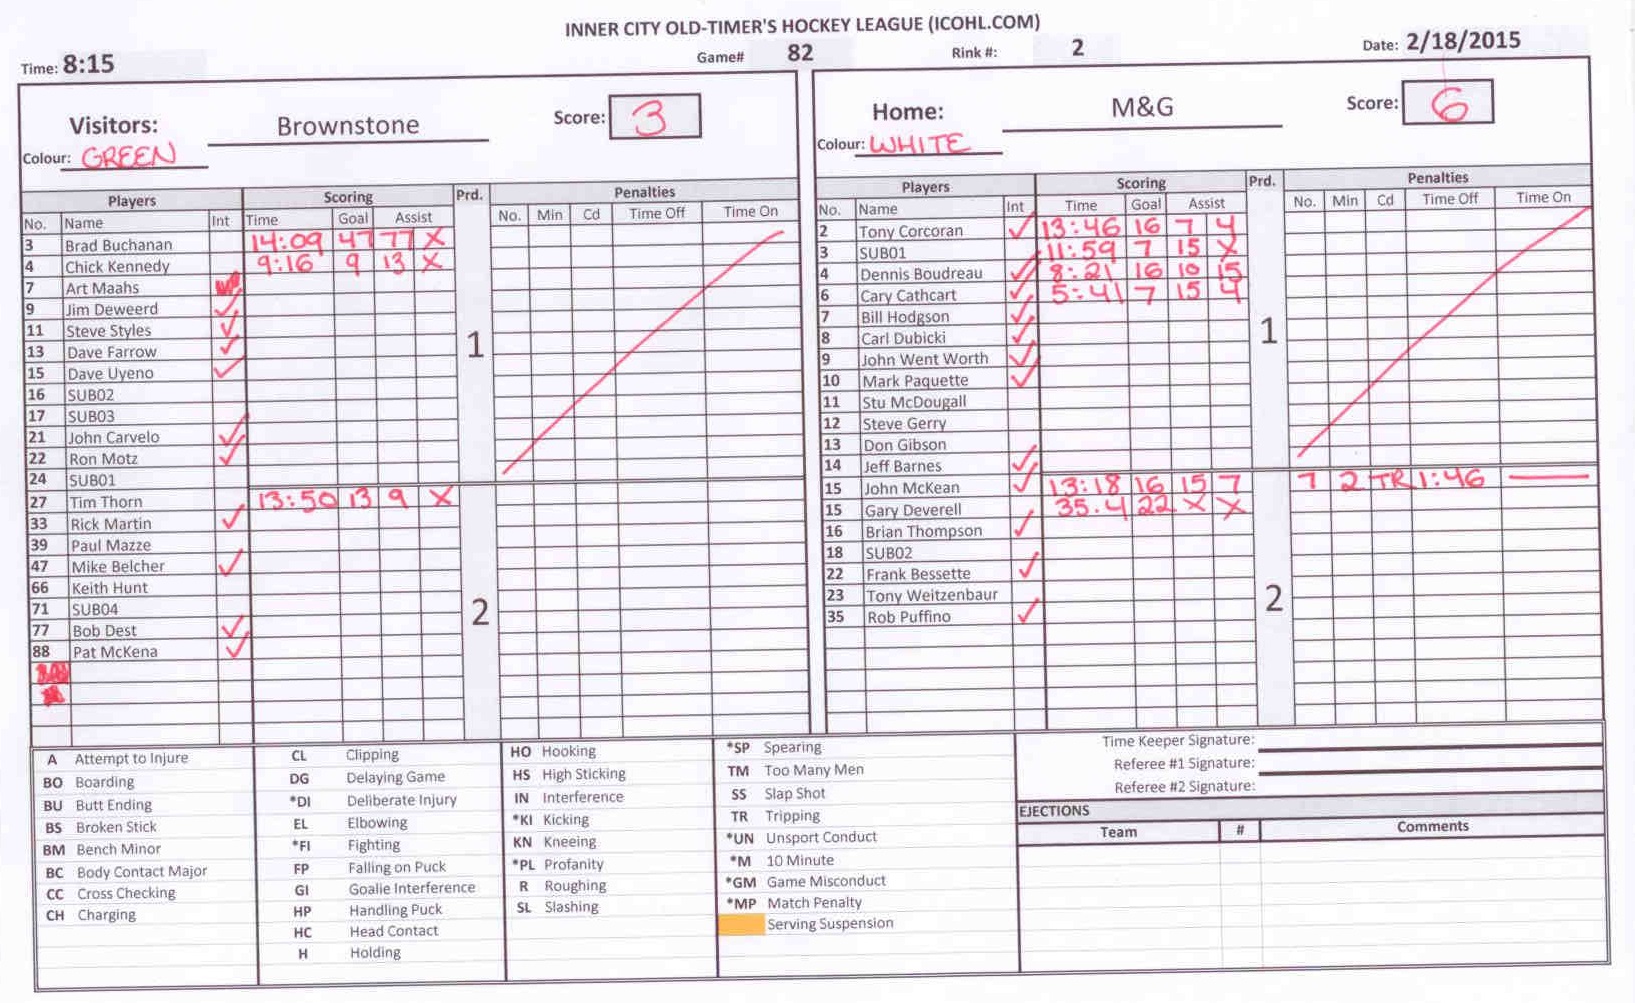 INNER CITY OLD-TIMER'S HOCKEY LEAGUE (ICOHL.COM)
Time: 8:15 Game# 82 Rink #: 2 Date: 2/18/2015
Visitors: Brownstone Score: 3
Colour: GREEN
Players Scoring Prd. Penalties
No. Name Int Time Goal Assist No. Min Cd Time Off Time On
3 Brad Buchanan 14:09 47 77 X
4 Chick Kennedy 9:16 9 13 X
7 Art Maahs
9 Jim Deweerd ✓
11 Steve Styles ✓
13 Dave Farrow ✓
15 Dave Uyeno ✓
16 SUB02
17 SUB03
21 John Carvelo ✓
22 Ron Motz ✓
24 SUB01
27 Tim Thorn 13:50 13 9 X
33 Rick Martin ✓
39 Paul Mazze
47 Mike Belcher ✓
66 Keith Hunt
71 SUB04
77 Bob Dest ✓
88 Pat McKena ✓
1
2
Home: M&G Score: 6
Colour: WHITE
Players Scoring Prd. Penalties
No. Name Int Time Goal Assist No. Min Cd Time Off Time On
2 Tony Corcoran ✓ 13:46 16 7 4
3 SUB01 11:59 7 15 X
4 Dennis Boudreau ✓ 8:21 16 10 15
6 Cary Cathcart ✓ 5:41 7 15 4
7 Bill Hodgson ✓
8 Carl Dubicki ✓
9 John Went Worth ✓
10 Mark Paquette ✓
11 Stu McDougall
12 Steve Gerry
13 Don Gibson
14 Jeff Barnes ✓
15 John McKean ✓ 13:18 16 15 7 7 2 TR 1:46 —
15 Gary Deverell 35.4 22 X X
16 Brian Thompson ✓
18 SUB02
22 Frank Bessette ✓
23 Tony Weitzenbaur
35 Rob Puffino ✓
1
2
A Attempt to Injure
BO Boarding
BU Butt Ending
BS Broken Stick
BM Bench Minor
BC Body Contact Major
CC Cross Checking
CH Charging
CL Clipping
DG Delaying Game
*DI Deliberate Injury
EL Elbowing
*FI Fighting
FP Falling on Puck
GI Goalie Interference
HP Handling Puck
HC Head Contact
H Holding
HO Hooking
HS High Sticking
IN Interference
*KI Kicking
KN Kneeing
*PL Profanity
R Roughing
SL Slashing
*SP Spearing
TM Too Many Men
SS Slap Shot
TR Tripping
*UN Unsport Conduct
*M 10 Minute
*GM Game Misconduct
*MP Match Penalty
Serving Suspension
Time Keeper Signature:
Referee #1 Signature:
Referee #2 Signature:
EJECTIONS
Team # Comments